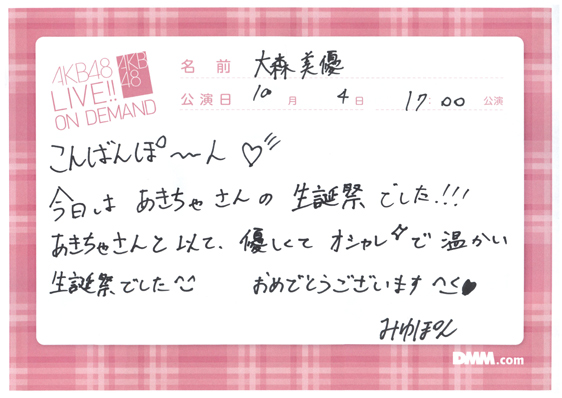 AKB48
LIVE!!
ON DEMAND
AKB
48
名前 大森美優
公演日 10月 4日 17:00 公演
こんばんぽ〜ん♡
今日は あきちゃさんの 生誕祭でした!!!
あきちゃさんと以て、優しくて オシャレで 温かい
生誕祭でした^^ おめでとうございます
みゆぽん
DMM.com